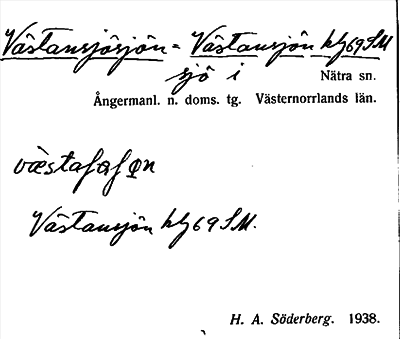 Västansjösjön = Västansjön bl 69 SM
sjö i Nätra sn.
Ångermanl. n. doms. tg. Västernorrlands län.
Västansjön bl 69 SM.
H. A. Söderberg. 1938.